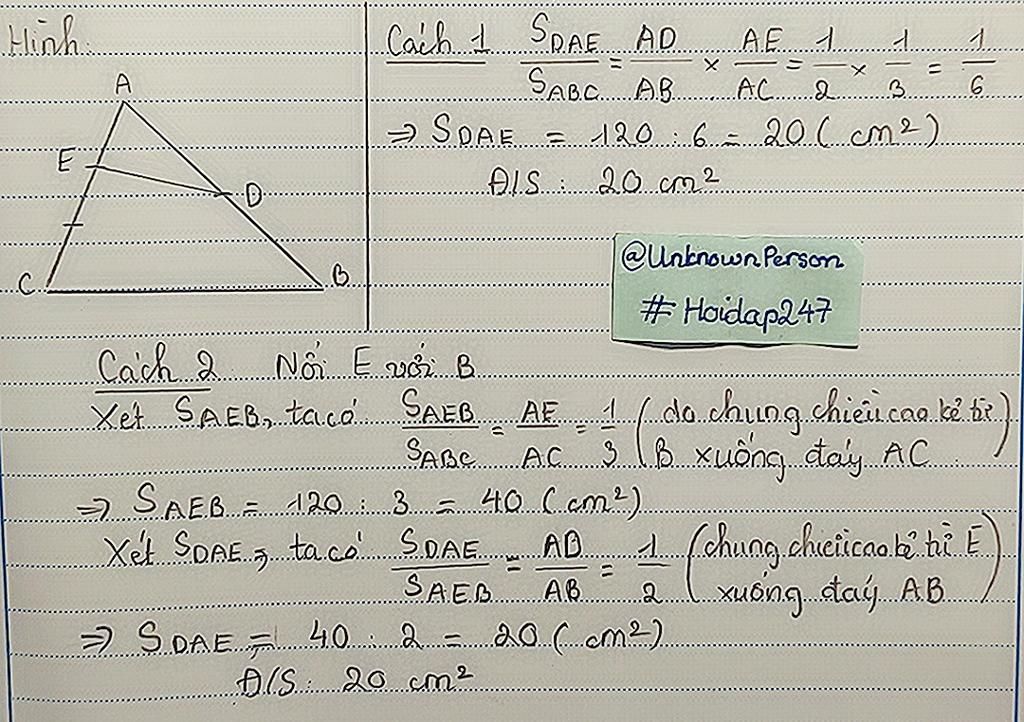 Hình:
A
E
D
C
B
Cách 1 S_DAE/S_ABC = AD/AB × AE/AC = 1/2 × 1/3 = 1/6
⇒ S_DAE = 120 : 6 = 20 (cm²)
Đ/S: 20 cm²
@UnknownPerson
# Hoidap247
Cách 2 Nối E với B
Xét S_AEB, ta có S_AEB/S_ABC = AE/AC = 1/3 (do chung chiều cao kẻ từ
B xuống đáy AC)
⇒ S_AEB = 120 : 3 = 40 (cm²)
Xét S_DAE, ta có S_DAE/S_AEB = AD/AB = 1/2 (chung chiều cao kẻ từ E
xuống đáy AB)
⇒ S_DAE = 40 : 2 = 20 (cm²)
Đ/S: 20 cm²